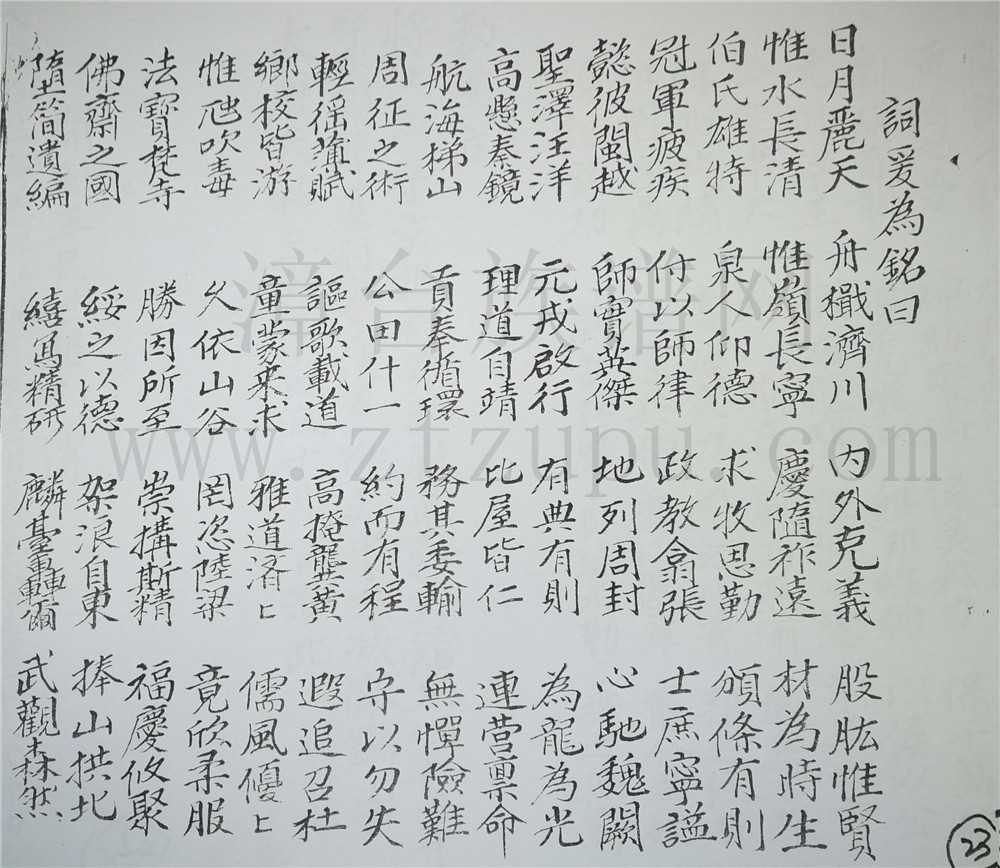 詞爰為銘曰
日月麗天 舟檝濟川 內外克義 股肱惟賢
惟水長清 惟嶺長寧 慶隨祚遠 材為時生
伯氏雄特 泉人仰德 求牧思勤 頒條有則
冠軍疲疾 付以師律 政教翕張 士庶寧謐
懿彼閩越 師實英傑 地列周封 心馳魏闕
聖澤汪洋 元戎啟行 有典有則 為龍為光
高懸秦鏡 理道自靖 比屋皆仁 連營禀命
航海梯山 貢奉循環 務其委輸 無憚險難
周征之術 公田什一 約而有程 守以勿失
輕徭薄賦 謳歌載道 高掩龔黃 遐追召杜
鄉校皆游 童蒙来求 雅道済〻 儒風優〻
惟虺吹毒 久依山谷 罔恣陸梁 竟欣柔服
法寶梵寺 勝因所至 崇搆斯精 福慶攸聚
佛齋之國 綏之以德 架浪自東 捧山拱北
墮簡遺編 繕寫精研 麟臺轟爾 武觀森然
23
漳台族谱网
www.ztzupu.com